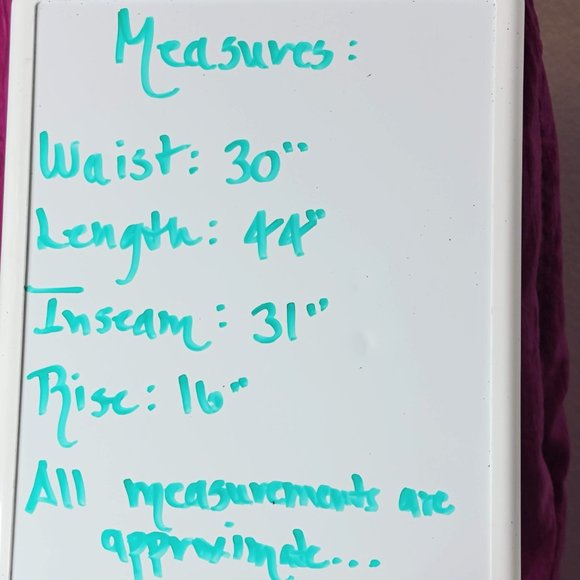 Measures:
Waist: 30"
Length: 44"
Inseam: 31"
Rise: 16"
All measurements are
approximate...